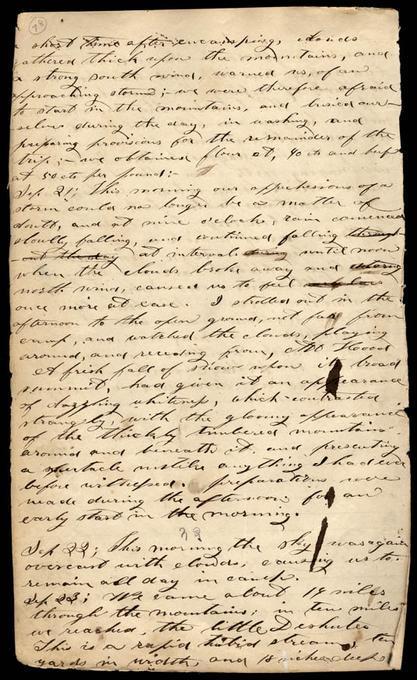 78
a short time after encamping, clouds
gathered thick upon the mountains, and
a strong south wind, warned us, of an
approaching storm; we were therefore afraid
to start in the mountains, and busied our-
selves during the day, in washing, and
preparing provisions for the remainder of the
trip;— we obtained flour at, 40 cts and beef
at 50 cts per pound:—
Sep. 21; This morning our apprehensions of a
storm could no longer be a matter of
doubt, and at nine o'clock, rain commenced
slowly falling, and continued falling through
out the day at intervals until noon
when the clouds broke away and
north wind, caused us to feel
once more at ease. I strolled out in the
afternoon to the open ground, not far from
camp, and watched the clouds, playing
around, and receding from, Mt Hood
A fresh fall of snow upon its broad
summit, had given it an appearance
of dazzling whiteness, which contrasted
strangely with the gloomy appearance
of the thickly timbered mountains
around and beneath it, and presenting
a spectacle unlike anything I had ever
before witnessed. preparations were
made during the afternoon for an
early start in the morning.
Sep 22; This morning the sky was again
overcast with clouds, causing us to
remain all day in camp.
Sep 23; We came about 18 miles
through the mountains; in ten miles
we reached, the little Deshutes
This is a rapid, turbid stream, ten
yards in width, and 18 inches deep